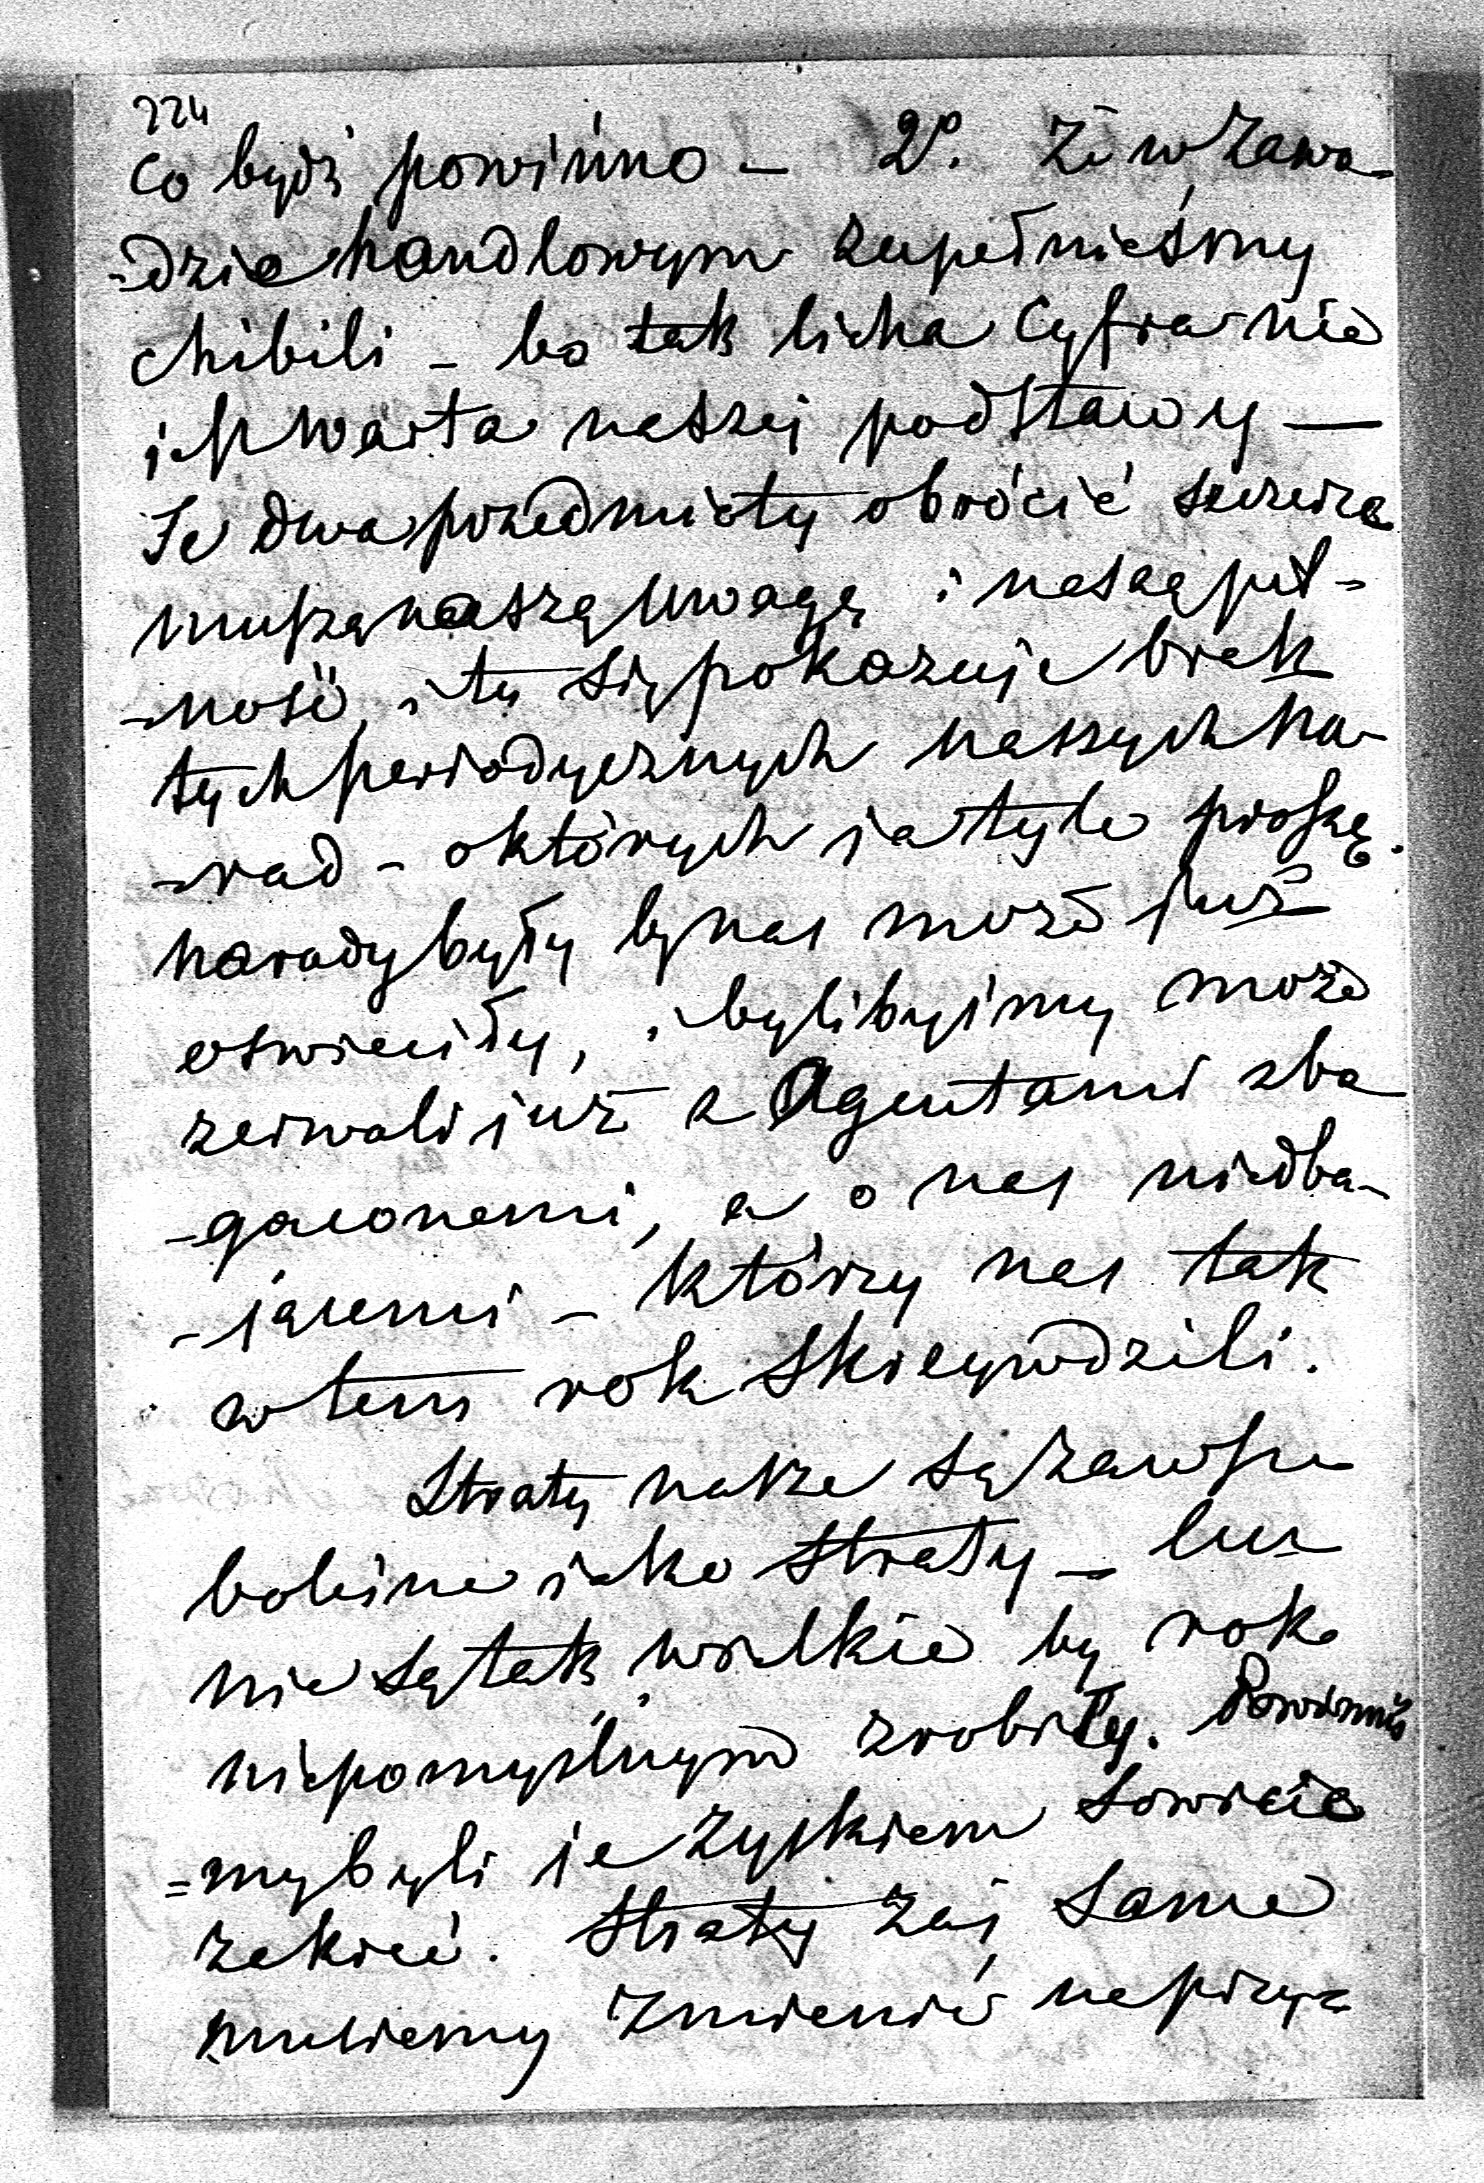 224
co bydź powinno – 2o. Że w zawa-
-dzie handlowym zupełnieśmy
chibili – bo tak licha cyfra nie
jest warta naszej podstawy —
Te dwa przedmioty obrócić szczerze
muszą naszą uwagę i naszą pil-
-ność, i tu się pokazuje brak
tych periodycznych naszych na-
-rad – o których ja tyle proszę.
narady były by nas może już
oświeciły, i bylibyśmy może
zerwali już z Agentami zbo
-gaconemi, a o nas niedba-
-jącemi – którzy nas tak
w tem rok skrzywdzili.
Straty nasze są zawsze
boleśne jako straty – lecz
nie są tak wielkie by rok
niepomyślnym zrobiły. Powinniś
=my byli je zyskiem sowicie
zakrić. Straty zaś same
musiemy zmienić naprzy=